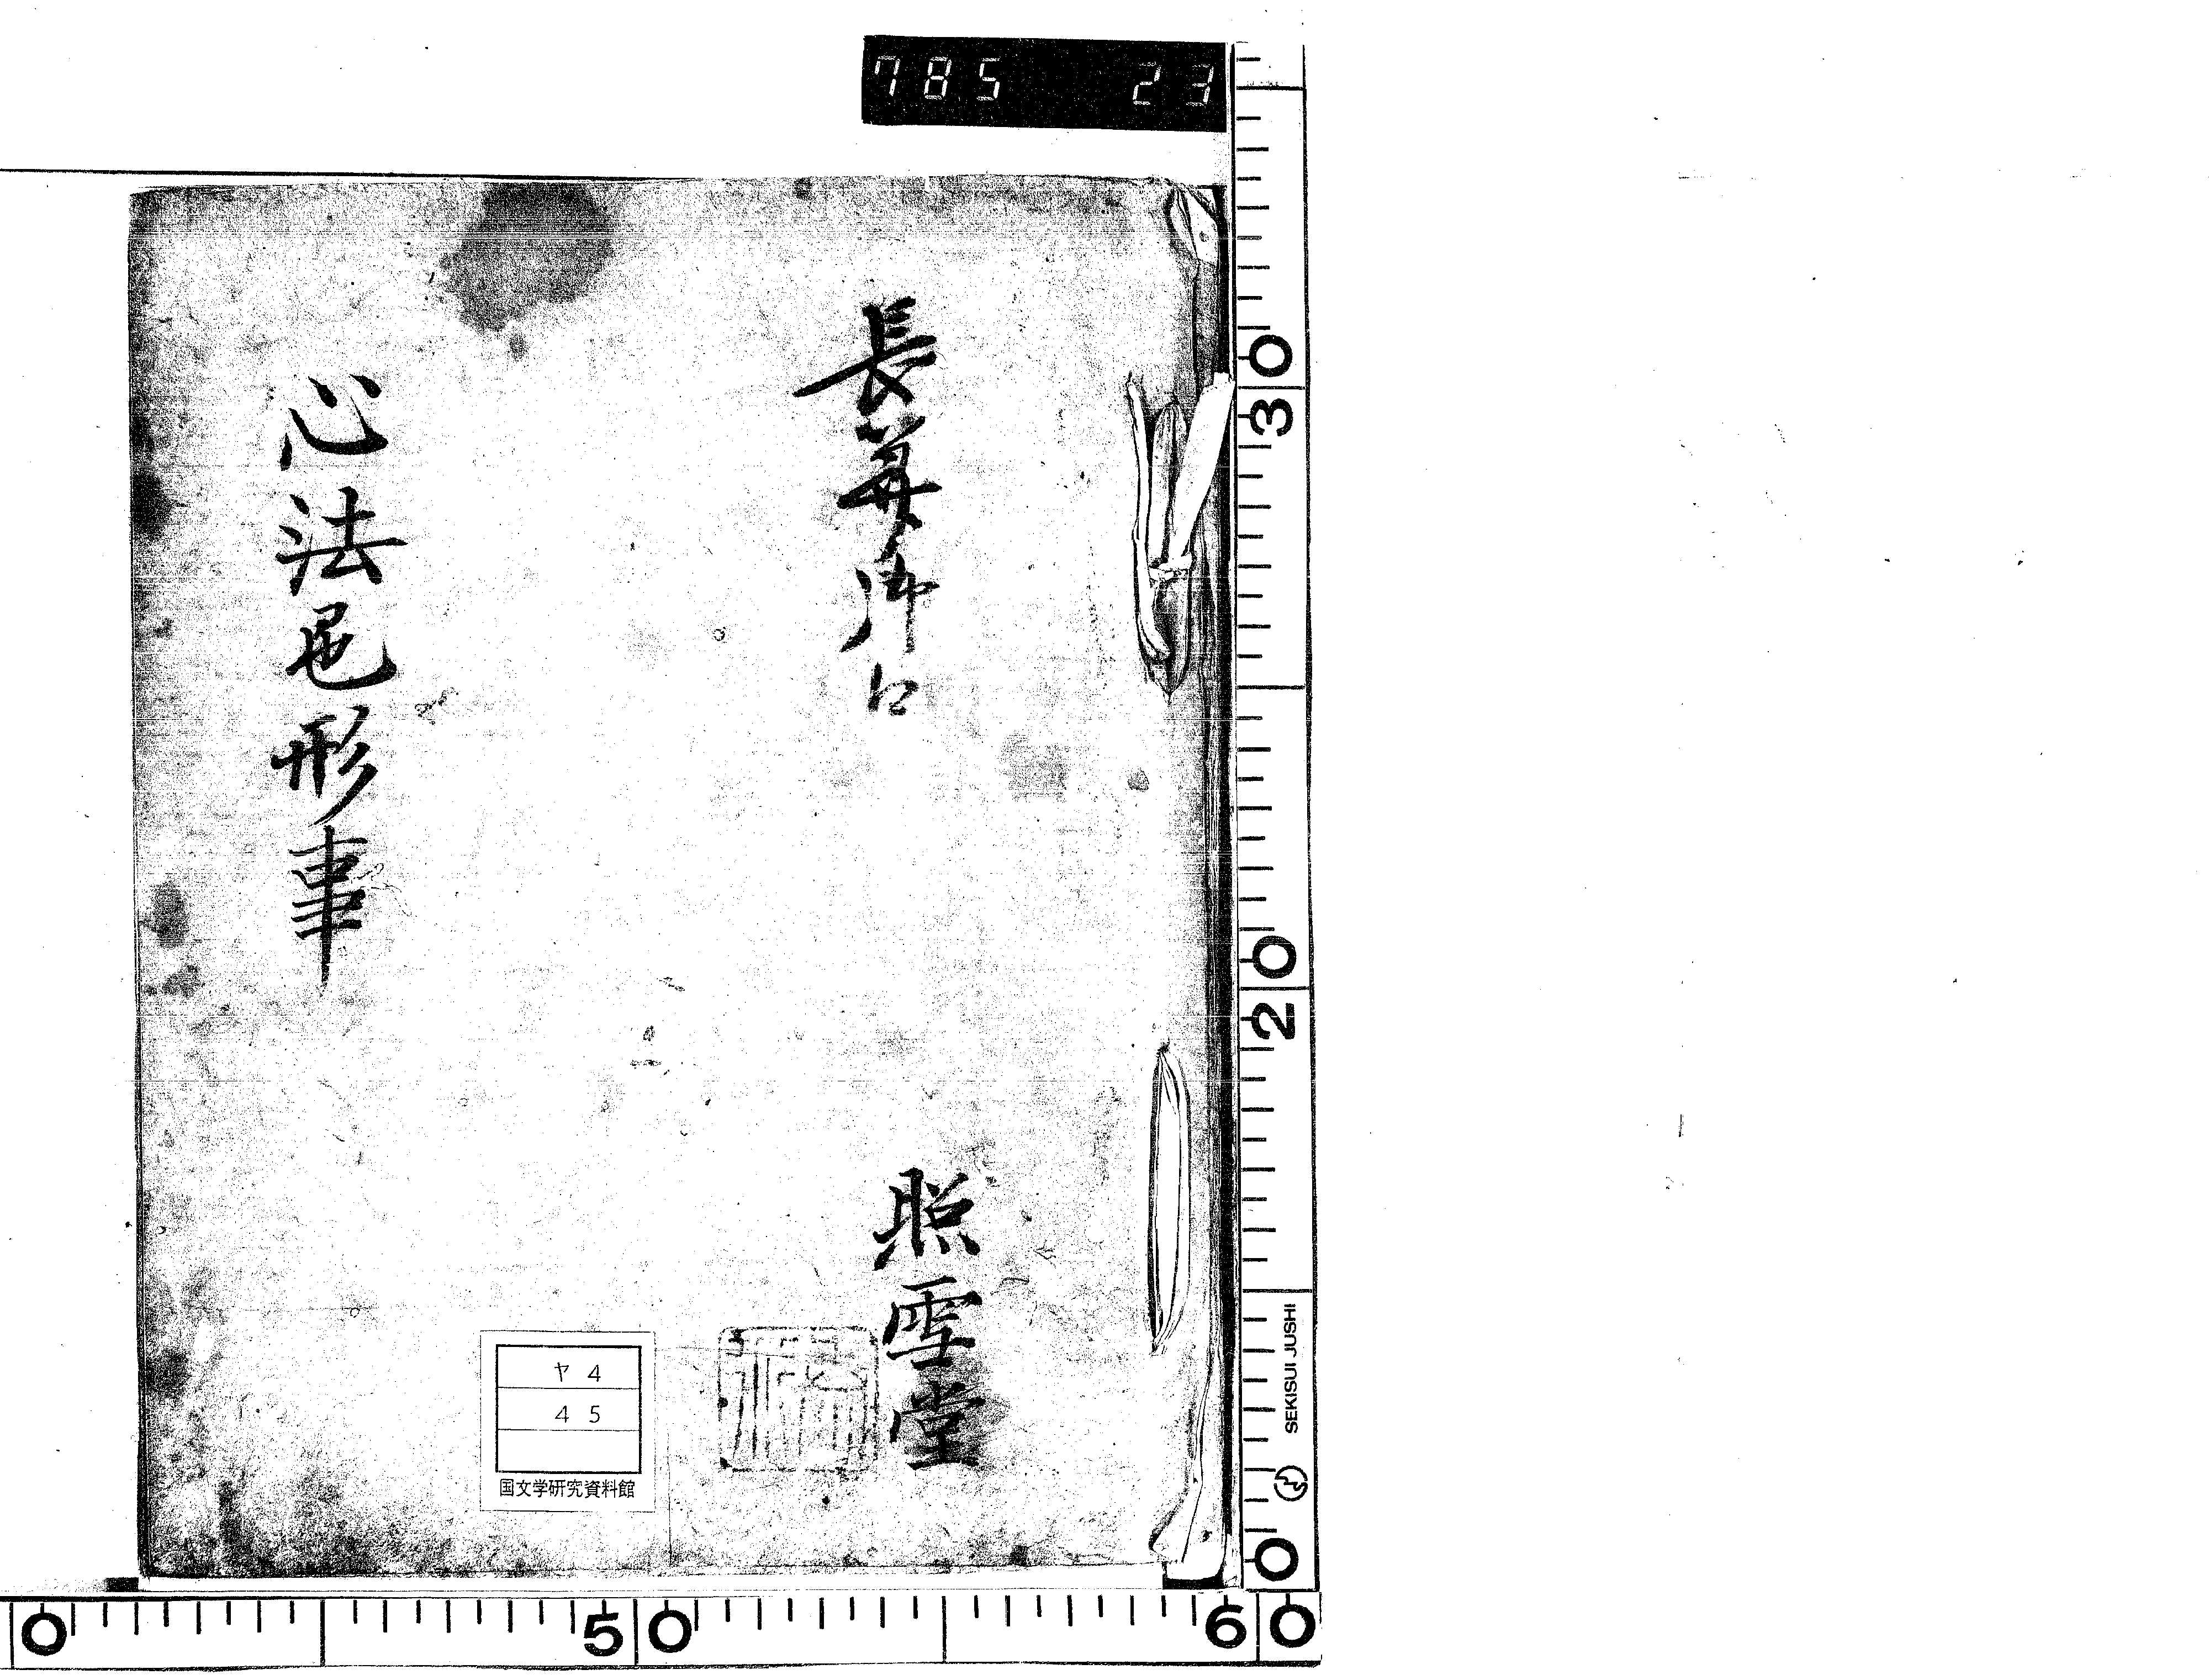 785 23
長算御口
照雪堂
心法色形事
ヤ4
45
国文学研究資料館
30
20
0
SEKISUI JUSHI
0
50
60